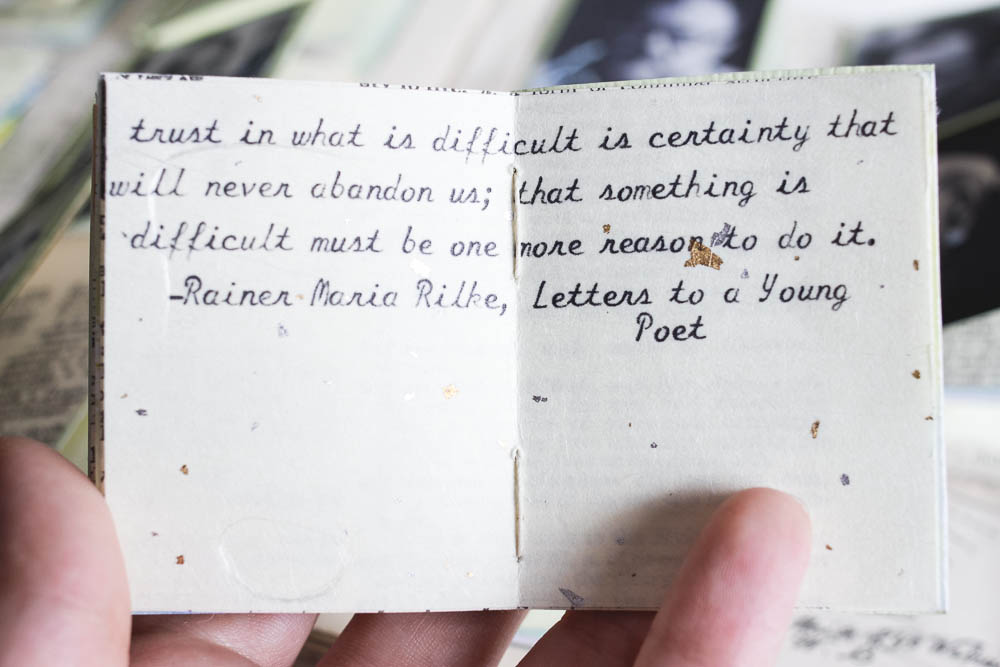 trust in what is difficult is certainty that
will never abandon us; that something is
difficult must be one more reason to do it.
-Rainer Maria Rilke, Letters to a Young
Poet